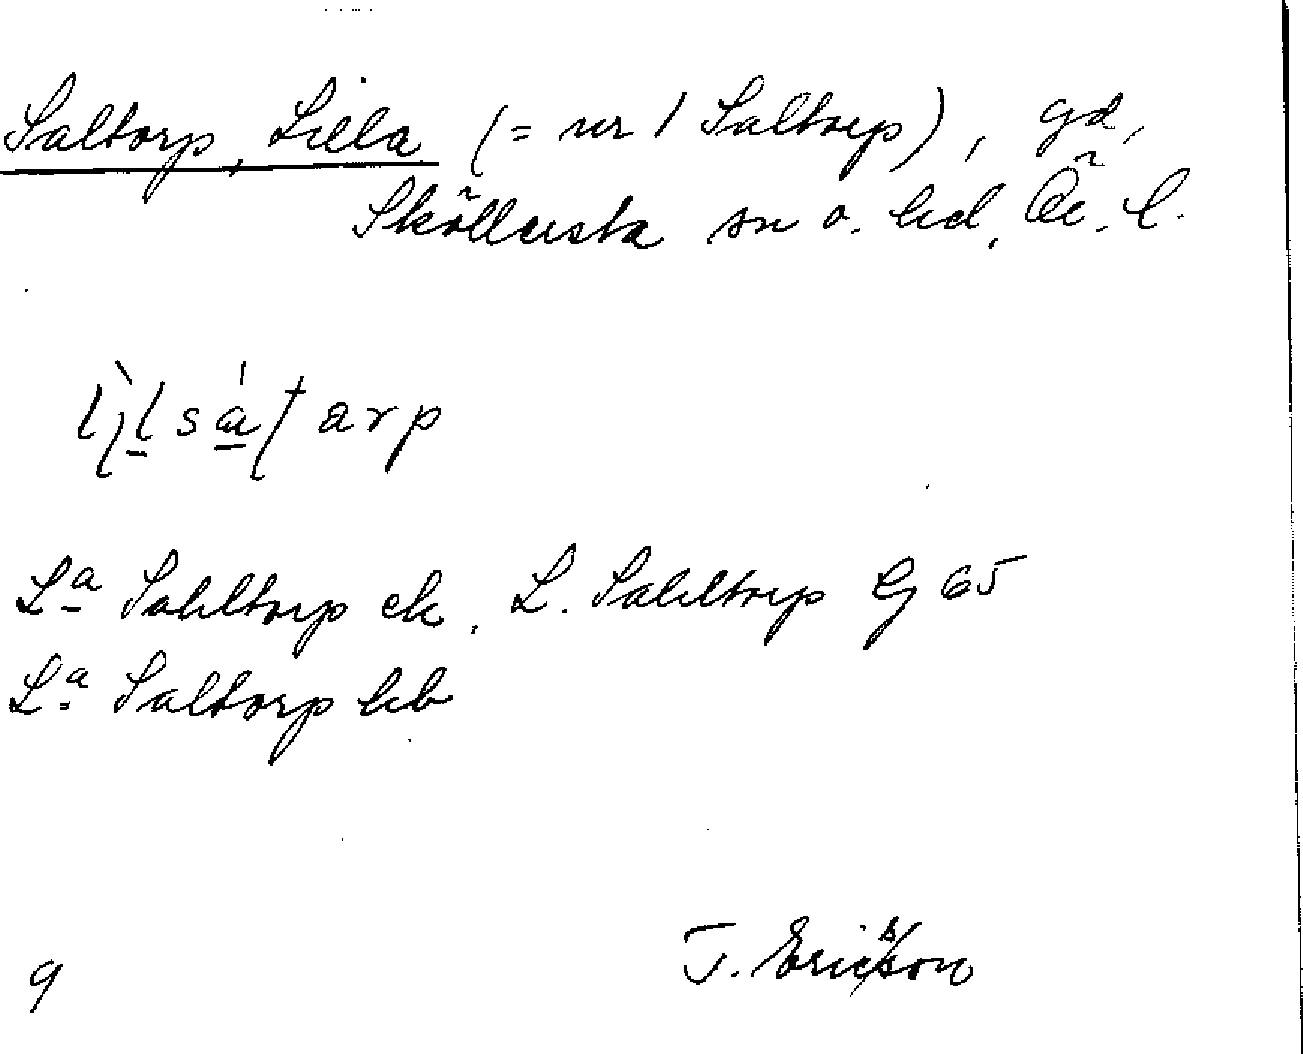 Saltorp, Lilla (= nr 1 Saltorp), gd,
Sköllersta sn o. hd, Ör. l.
La Sahltorp ek, L. Sahltorp Gj 65
La Saltorp hb
T. Ericsson
9